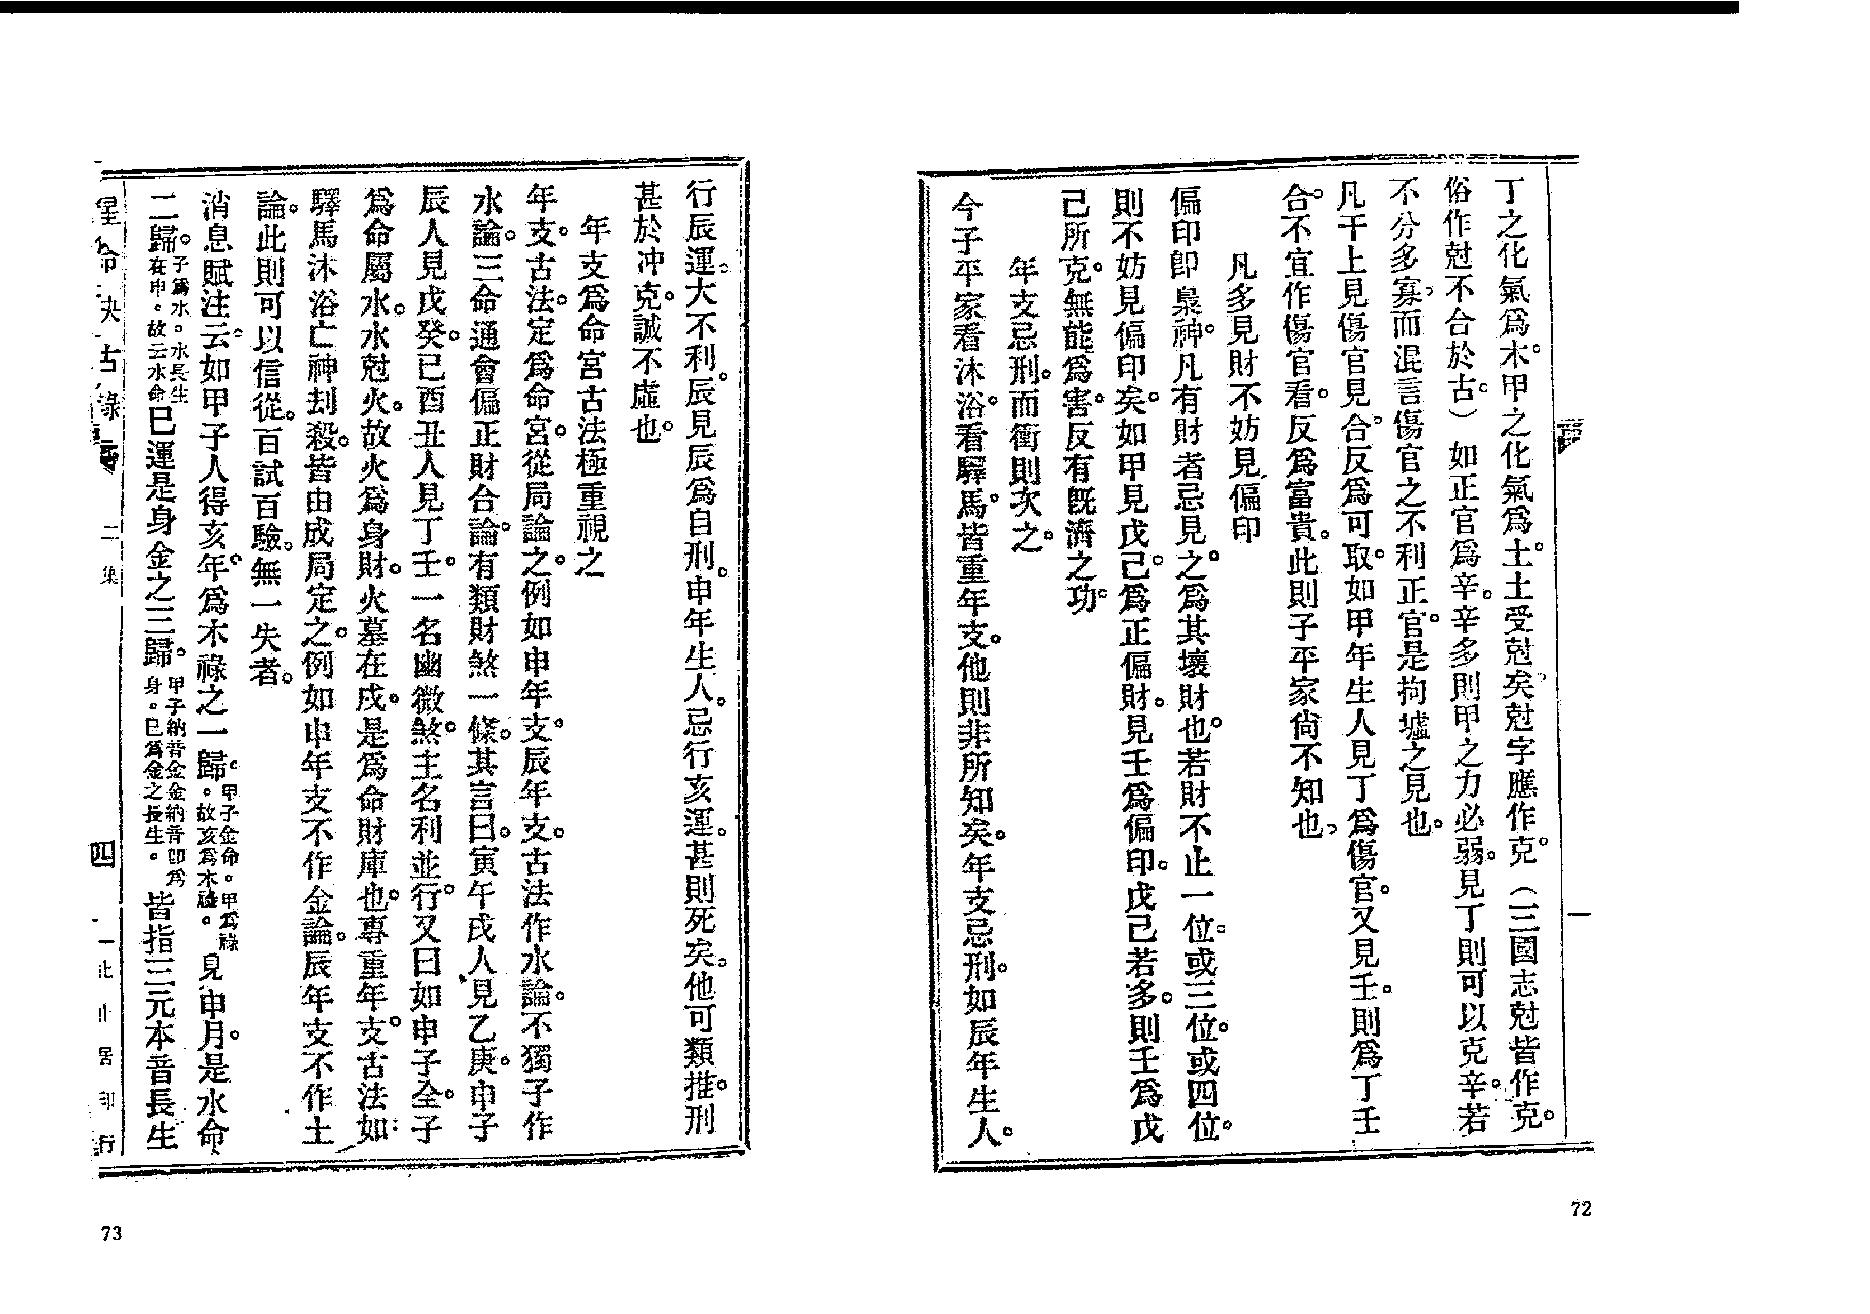 丁之化氣爲木。甲之化氣爲土。土受尅矣。尅字應作克。（三國志尅皆作克。
俗作尅不合於古。）如正官爲辛。辛多則甲之力必弱。見丁則可以克辛。若
不分多寡。而混言傷官之不利正官。是拘墟之見也。
凡干上見傷官見合。反爲可取。如甲年生人見丁爲傷官。又見壬。則爲丁壬
合。不宜作傷官看。反爲富貴。此則子平家尙不知也。
凡多見財不妨見偏印
偏印卽梟神。凡有財者忌見之。爲其壞財也。若財不止一位。或三位。或四位。
則不妨見偏印矣。如甲見戊己。爲正偏財。見壬爲偏印。戊己若多。則壬爲戊
己所克。無能爲害。反有旣濟之功。
年支忌刑。而衝則次之。
今子平家看沐浴。看驛馬。皆重年支。他則非所知矣。年支忌刑。如辰年生人。
72
行辰運。大不利。辰見辰爲自刑。申年生人。忌行亥運。甚則死矣。他可類推。刑
甚於冲克。誠不虛也。
年支爲命宮古法極重視之
年支。古法。定爲命宮。從局論之。例如申年支。辰年支。古法作水論。不獨子作
水論。三命通會偏正財合論。有類財煞一條。其言曰。寅午戌人見乙庚。申子
辰人見戊癸。巳酉丑人見丁壬。一名幽微煞。主名利並行。又曰如申子全。子
爲命屬水。水尅火。故火爲身財。火墓在戌。是爲命財庫也。專重年支。古法如
驛馬沐浴亡神刦殺。皆由成局定之。例如申年支不作金論。辰年支不作土
論。此則可以信從。百試百驗。無一失者。
消息賦注云。如甲子人得亥年。爲木祿之一歸。甲子金命。甲爲祿。故亥爲木祿。見申月。是水命
二歸。子爲水。水長生在申。故云水命巳運是身金之三歸。甲子納音金金納音卽爲身。巳爲金之長生。皆指三元本音長生
命
古錄
二集
四
居印行
73